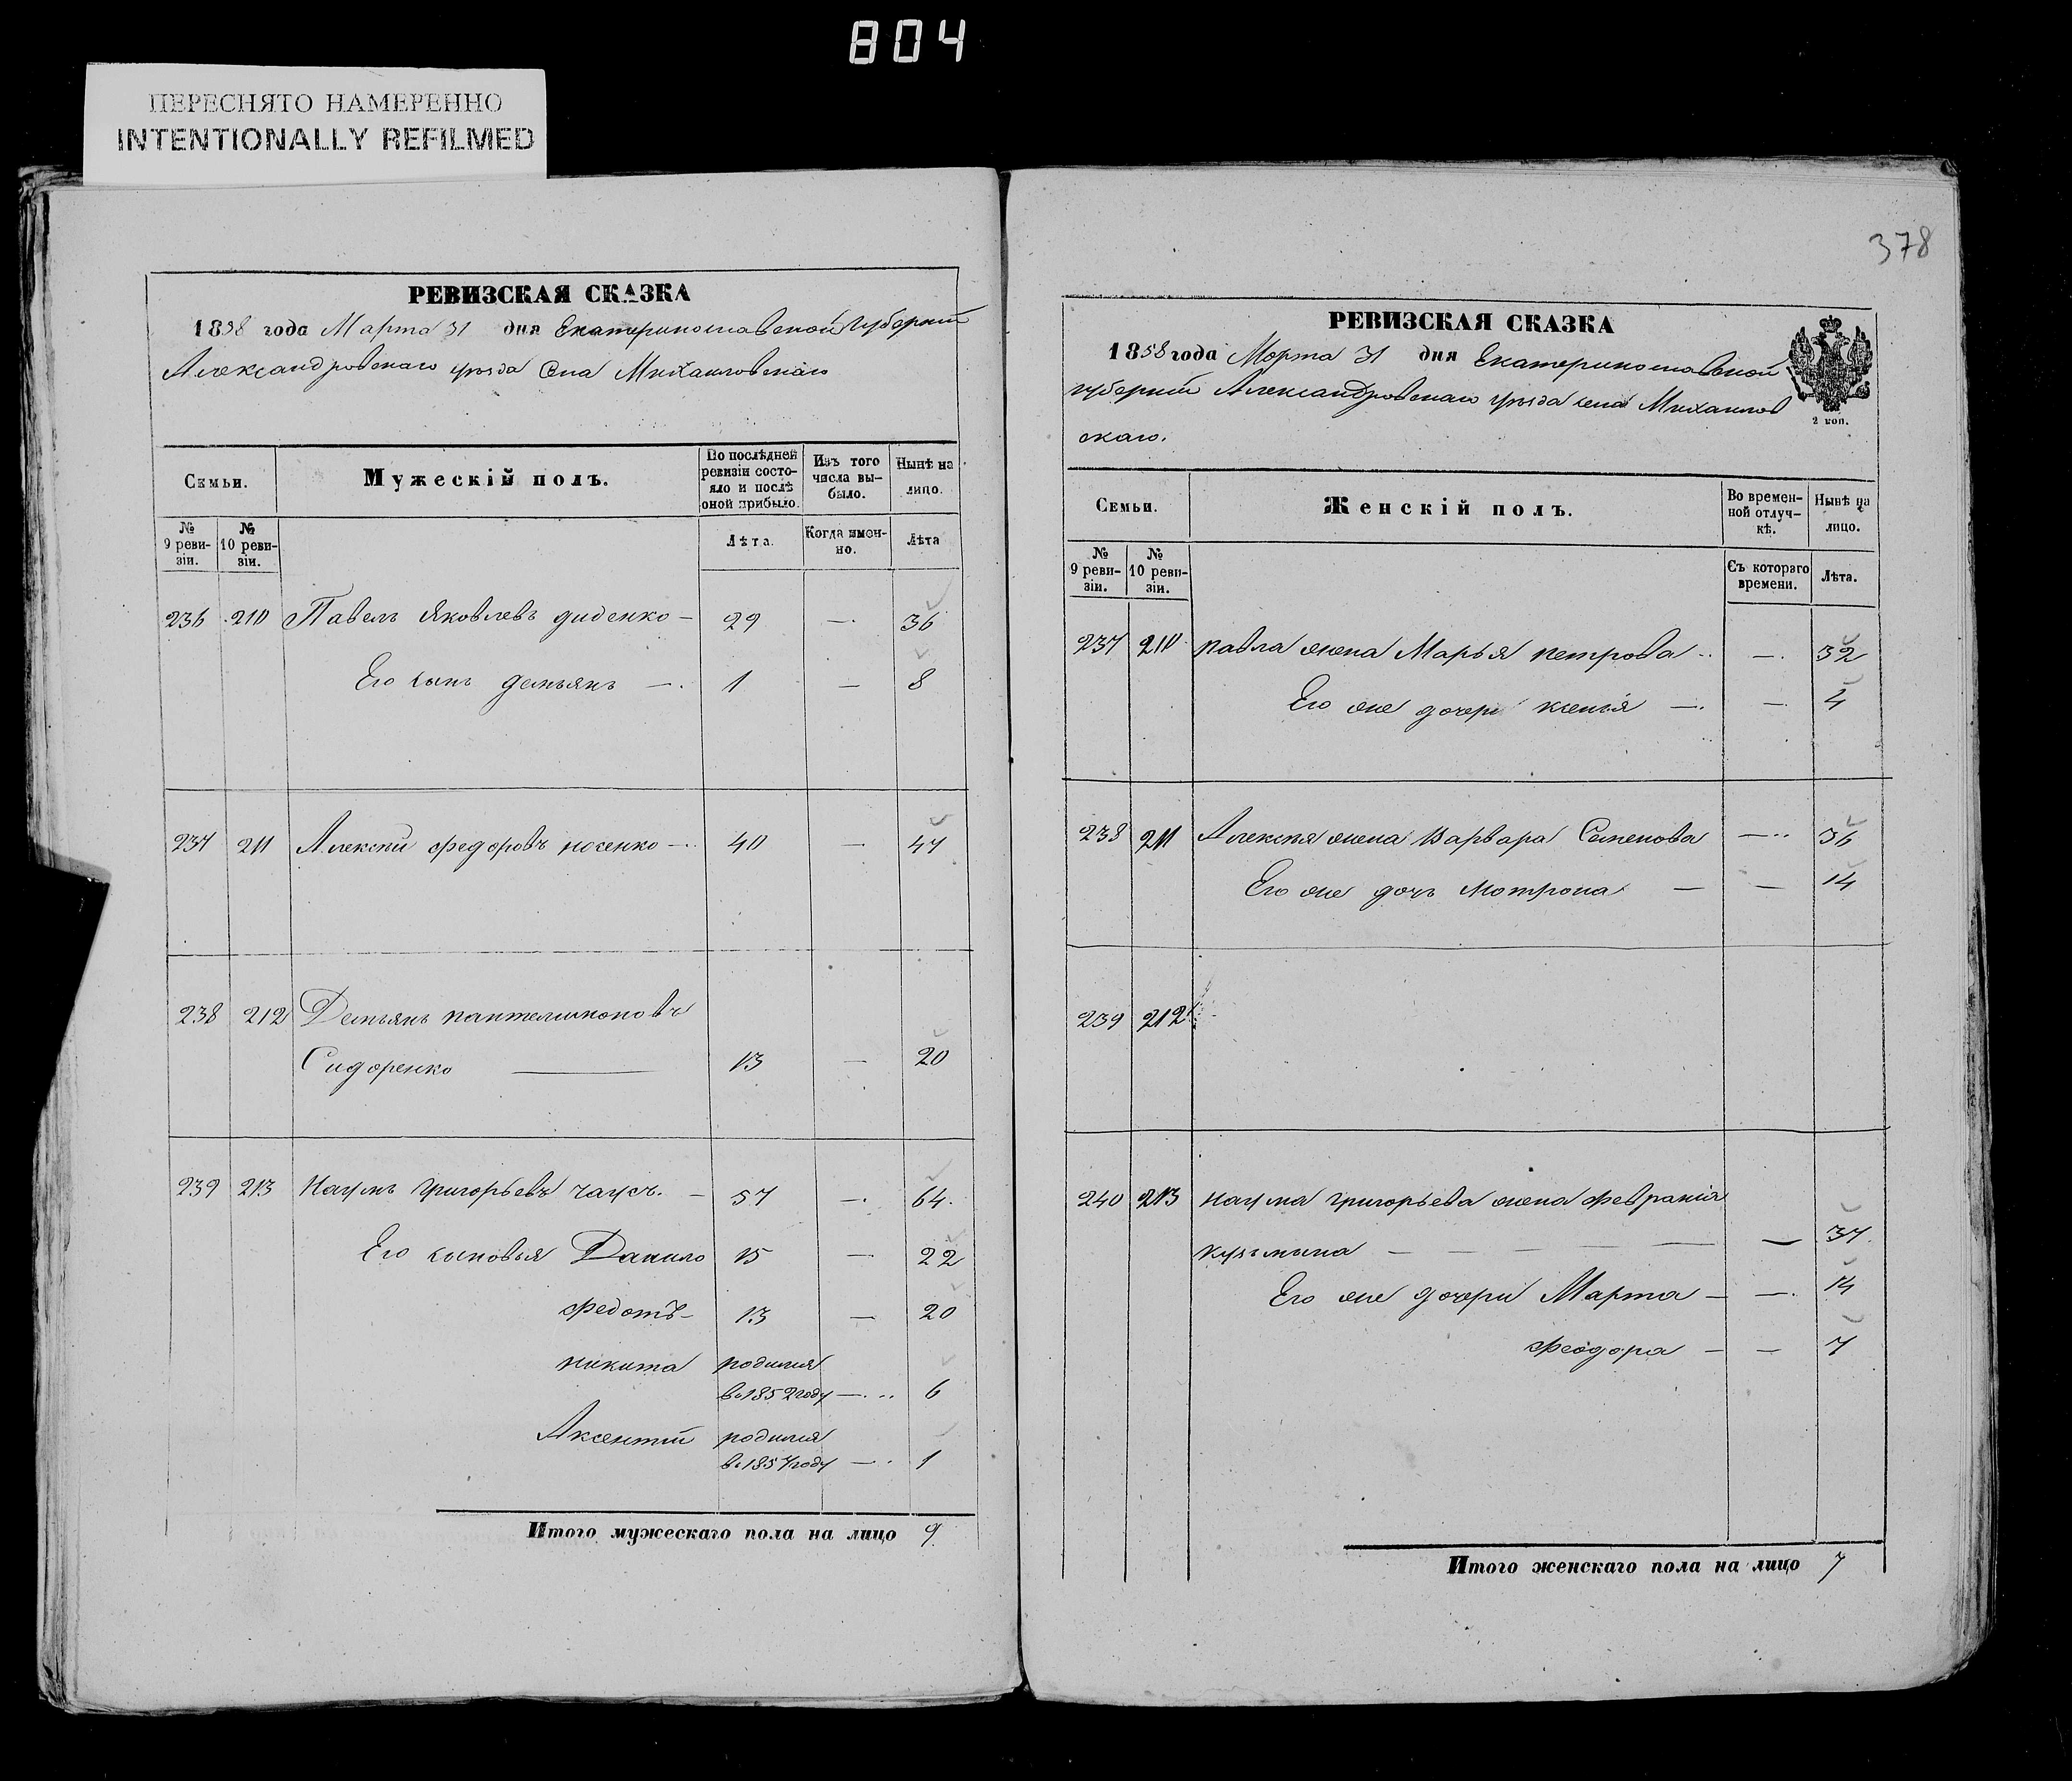 804
ПЕРЕСНЯТО НАМЕРЕННО
INTENTIONALLY REFILMED
РЕВИЗСКАЯ СКАЗКА
1858 года Марта 31 дня Екатеринославской Губерніи
Александровскаго уѣзда Села Михайловскаго
Семьи.
Мужескій полъ.
По послѣдней ревизіи состояло и послѣ оной прибыло.
Изъ того числа выбыло.
Нынѣ на лицо.
№ 9 ревизіи.
№ 10 ревизіи.
Лѣта.
Когда именно.
Лѣта
236 210 Павелъ Яковлевъ диденко — 29 — 36
Его сынъ демьянъ — 1 — 8
237 211 Алексѣй федоровъ носенко — 40 — 47
238 212 Демьянъ пантелимоновъ
Сидоренко — 13 — 20
239 213 Наумъ григорьевъ чаусъ. — 57 — 64.
Его сыновья Данило 15 — 22
Федотъ — 13 — 20
никита родился
въ 1852 году — 6
Аксентій родился
въ 1857 году — 1
Итого мужескаго пола на лицо 9
378
РЕВИЗСКАЯ СКАЗКА
1858 года Марта 31 дня Екатеринославской
губерніи Александровскаго уѣзда села Михайлов
скаго.
2 коп.
Семьи.
Женскій полъ.
Во временной отлучкѣ.
Нынѣ на лицо.
№ 9 ревизіи.
№ 10 ревизіи.
Съ котораго времени.
Лѣта.
237 210 павла жена Марья петрова — — 32
Его же дочери ксенія — — 4
238 211 Алексѣя жена Варвара Семенова — 36
Его же дочь Мотрона — — 14
239 212
240 213 наума григорьева жена Февранія
кузьмина — — 37.
Его же дочери Марта — — 14
Феодора — — 7
Итого женскаго пола на лицо 7